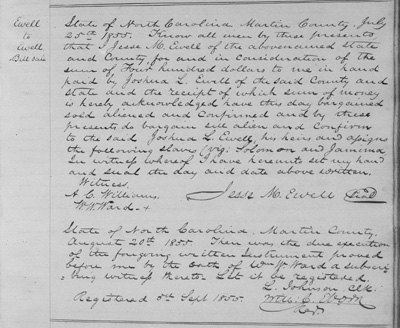 Ewell
to
Ewell
Bill Sale
State of North Carolina, Martin County, July
25th 1855. Know all men by these presents
that I Jesse M. Ewell of the abovenamed State
and County, for and in consideration of the
sum of Four hundred dollars to me in hand
paid by Joshua L. Ewell of the said County and
State and the receipt of which sum of money
is hereby acknowledged have this day bargained
sold aliened and confirmed and by these
presents do bargain sell alien and confirm
to the said Joshua L. Ewell, his heirs and assigns
the following slaves (viz: Solomon and Jamima
In witness whereof I have hereunto set my hand
and seal the day and date above written.
Witness,
A. C. Williams, Jesse M. Ewell Seal
W. W. Ward - +
State of North Carolina, Martin County,
August 20th 1855. Then was the due execution
of the foregoing written Instrument proved
before me by the oath of W. Ward a subscri
bing witness thereto. Let it be registered
L. Johnson, Clk.
Registered 5th Sept 1855. C.